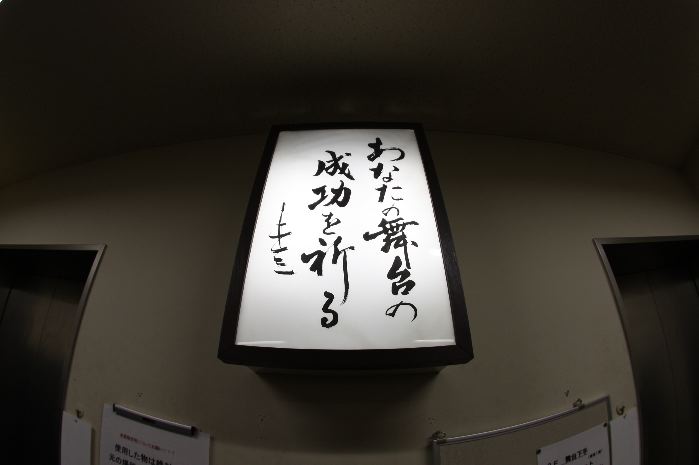 あなたの舞台の
成功を祈る
使用した物は
元の場
舞台下手